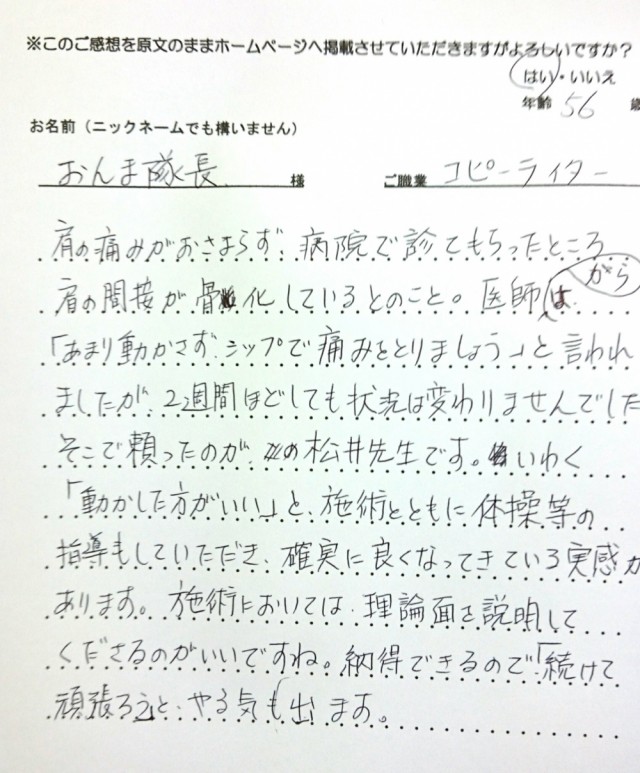 ※このご感想を原文のままホームページへ掲載させていただきますがよろしいですか？
はい・いいえ
年齢 56 歳
お名前（ニックネームでも構いません）
おんま隊長 様 ご職業 コピーライター
肩の痛みがおさまらず、病院で診てもらったところ
肩の間接が骨化しているとのこと。医師から
「あまり動かさず、シップで痛みをとりましょう」と言われ
ましたが、2週間ほどしても状況は変わりませんでした
そこで頼ったのが、松井先生です。いわく
「動かした方がいい」と、施術とともに体操等の
指導もしていただき、確実に良くなってきている実感が
あります。施術においては、理論面を説明して
くださるのがいいですね。納得できるので「続けて
頑張ろう」と、やる気も出ます。